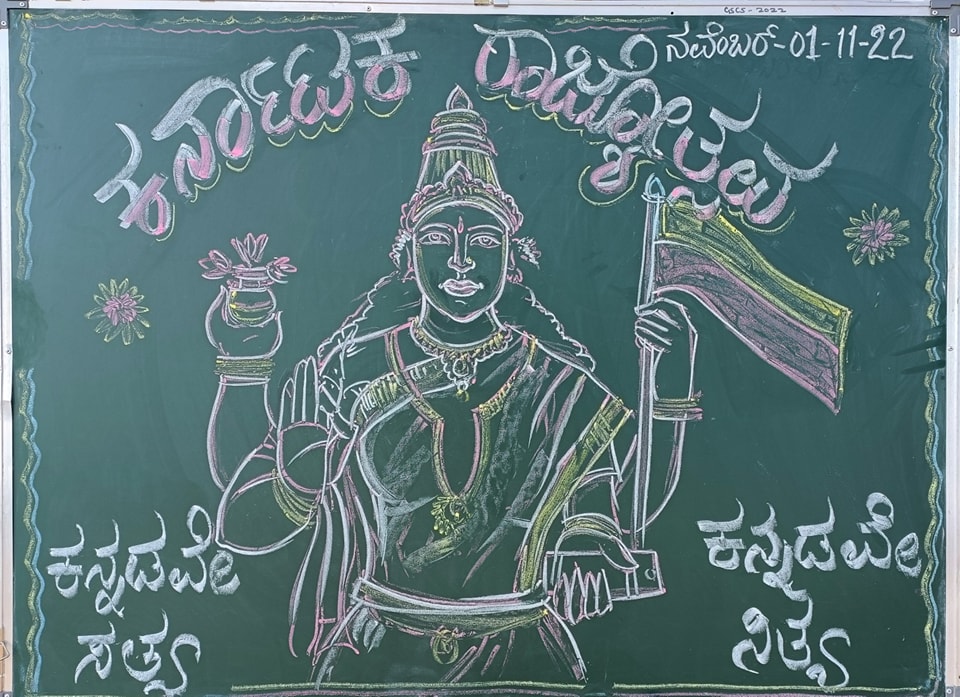 CSCS-2022
ನವೆಂಬರ್-01-11-22
ಕರ್ನಾಟಕ ರಾಜ್ಯೋತ್ಸವ
ಕನ್ನಡವೇ
ಸತ್ಯ
ಕನ್ನಡವೇ
ನಿತ್ಯ